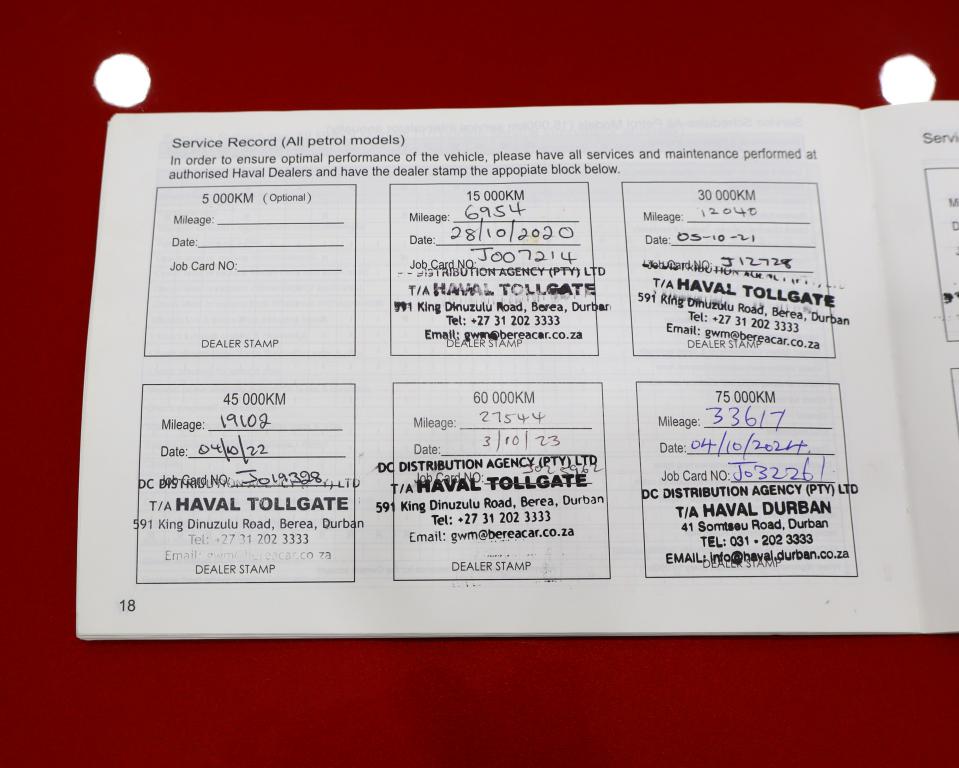 Service Record (All petrol models)
In order to ensure optimal performance of the vehicle, please have all services and maintenance performed at
authorised Haval Dealers and have the dealer stamp the appopiate block below.
5 000KM (Optional)
Mileage:
Date:
Job Card NO:
DEALER STAMP
15 000KM
Mileage: 6954
Date: 28/10/2020
Job Card NO: J007214
DISTRIBUTION AGENCY (PTY) LTD
T/A HAVAL TOLLGATE
591 King Dinuzulu Road, Berea, Durban
Tel: +27 31 202 3333
Email: gwm@bereacar.co.za
DEALER STAMP
30 000KM
Mileage: 12040
Date: 05-10-21
Job Card NO: J12728
T/A HAVAL TOLLGATE
591 King Dinuzulu Road, Berea, Durban
Tel: +27 31 202 3333
Email: gwm@bereacar.co.za
DEALER STAMP
45 000KM
Mileage: 19102
Date: 04/10/22
Job Card NO: J019328
DC DISTRIBUTION AGENCY (PTY) LTD
T/A HAVAL TOLLGATE
591 King Dinuzulu Road, Berea, Durban
Tel: +27 31 202 3333
Email: gwm@bereacar.co.za
DEALER STAMP
60 000KM
Mileage: 27544
Date: 3/10/23
DC DISTRIBUTION AGENCY (PTY) LTD
Job Card NO:
T/A HAVAL TOLLGATE
591 King Dinuzulu Road, Berea, Durban
Tel: +27 31 202 3333
Email: gwm@bereacar.co.za
DEALER STAMP
75 000KM
Mileage: 33617
Date: 04/10/2024.
Job Card NO: J032261
DC DISTRIBUTION AGENCY (PTY) LTD
T/A HAVAL DURBAN
41 Somtseu Road, Durban
TEL: 031 - 202 3333
EMAIL: info@haval.durban.co.za
DEALER STAMP
18